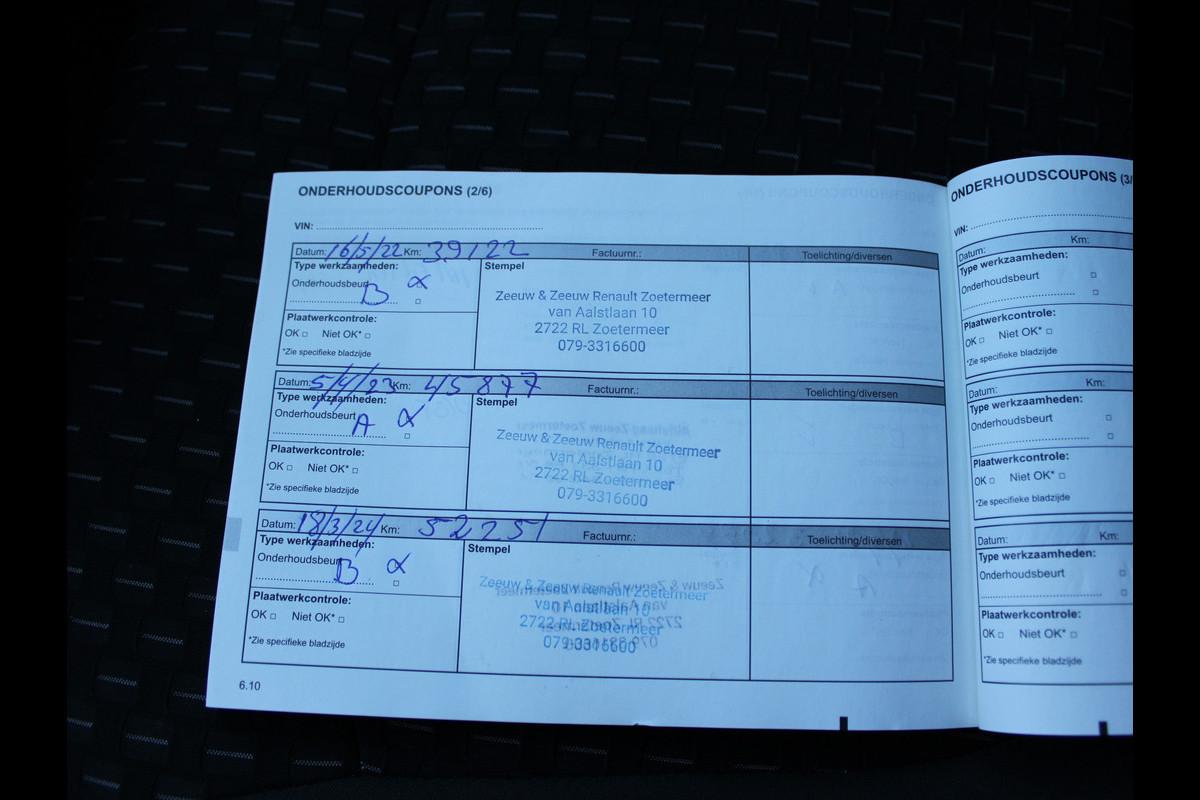 ONDERHOUDSCOUPONS (2/6)
VIN:
Datum: 16/5/22 Km: 39122 Factuurnr.: Toelichting/diversen
Type werkzaamheden: Stempel
Onderhoudsbeurt
B
Zeeuw & Zeeuw Renault Zoetermeer
van Aalstlaan 10
2722 RL Zoetermeer
079-3316600
Plaatwerkcontrole:
OK □ Niet OK* □
*Zie specifieke bladzijde
Datum: 5/4/23 Km: 45877 Factuurnr.: Toelichting/diversen
Type werkzaamheden: Stempel
Onderhoudsbeurt
A
Zeeuw & Zeeuw Renault Zoetermeer
van Aalstlaan 10
2722 RL Zoetermeer
079-3316600
Plaatwerkcontrole:
OK □ Niet OK* □
*Zie specifieke bladzijde
Datum: 18/3/24 Km: 52251 Factuurnr.: Toelichting/diversen
Type werkzaamheden: Stempel
Onderhoudsbeurt
B
Zeeuw & Zeeuw Renault Zoetermeer
van Aalstlaan 10
2722 RL Zoetermeer
079-3316600
Plaatwerkcontrole:
OK □ Niet OK* □
*Zie specifieke bladzijde
6.10
ONDERHOUDSCOUPONS (3/
VIN:
Datum: Km:
Type werkzaamheden:
Onderhoudsbeurt □
Plaatwerkcontrole:
OK □ Niet OK* □
*Zie specifieke bladzijde
Datum: Km:
Type werkzaamheden:
Onderhoudsbeurt □
Plaatwerkcontrole:
OK □ Niet OK* □
*Zie specifieke bladzijde
Datum: Km:
Type werkzaamheden:
Onderhoudsbeurt □
Plaatwerkcontrole:
OK □ Niet OK* □
*Zie specifieke bladzijde